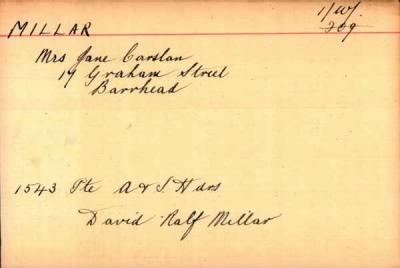 1/W/
MILLAR 209
Mrs Jane Carslan
19 Graham Street
Barrhead
1543 Pte A & S Hdrs
David Ralf Millar